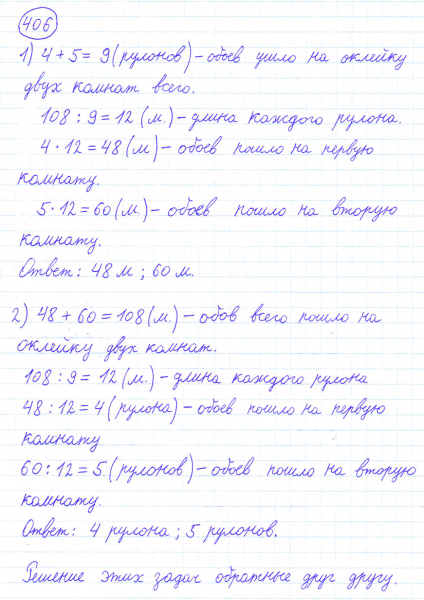 406
1) 4 + 5 = 9 (рулонов) – обоев ушло на оклейку
двух комнат всего.
108 : 9 = 12 (м.) – длина каждого рулона.
4 · 12 = 48 (м) – обоев пошло на первую
комнату.
5 · 12 = 60 (м.) – обоев пошло на вторую
комнату.
Ответ: 48 м ; 60 м.
2) 48 + 60 = 108 (м.) – обов всего пошло на
оклейку двух комнат.
108 : 9 = 12 (м.) – длина каждого рулона
48 : 12 = 4 (рулона) – обоев пошло на первую
комнату
60 : 12 = 5 (рулонов) – обоев пошло на вторую
комнату.
Ответ: 4 рулона ; 5 рулонов.
Решение этих задач обратные друг другу.